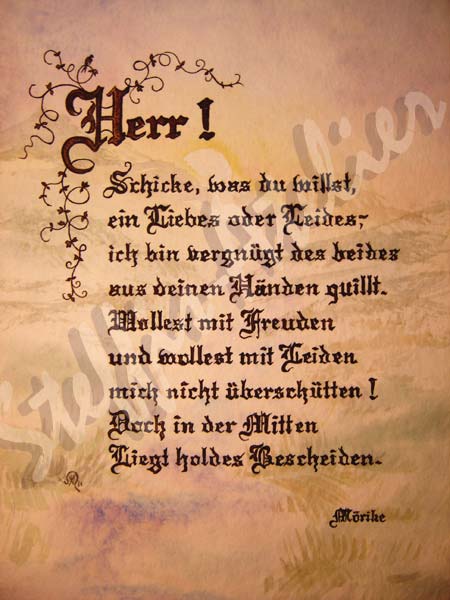 Herr!
Schicke, was du willst,
ein Liebes oder Leides;
ich bin vergnügt des beides
aus deinen Händen quillt.
Wollest mit Freuden
und wollest mit Leiden
mich nicht überschütten!
Doch in der Mitten
Liegt holdes Bescheiden.
Mörike